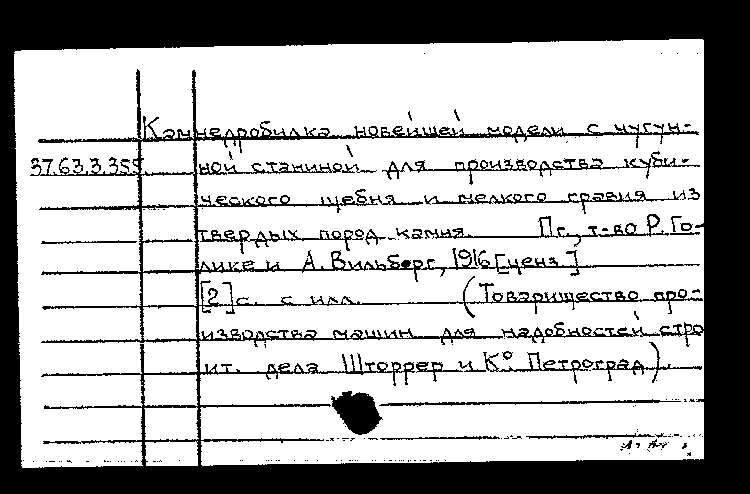 Камнедробилка новейшей модели с чугун-
37.63.3.355. ной станиной для производства куби-
ческого щебня и мелкого гравия из
твердых пород камня. Пг., т-во Р. Го-
лике и А. Вильборг, 1916 [ценз.]
[2] с. с илл. (Товарищество про-
изводства машин для надобностей стро
ит. дела Шторрер и К°. Петроград).